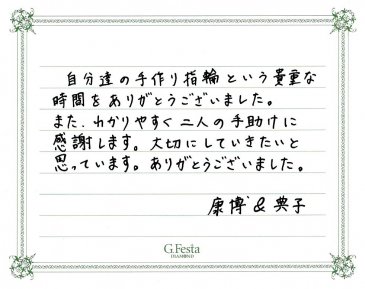 自分達の手作り指輪という貴重な
時間をありがとうございました。
また、わかりやすく二人の手助けに
感謝します。大切にしていきたいと
思っています。ありがとうございました。
康博&典子
G.Festa
DIAMOND